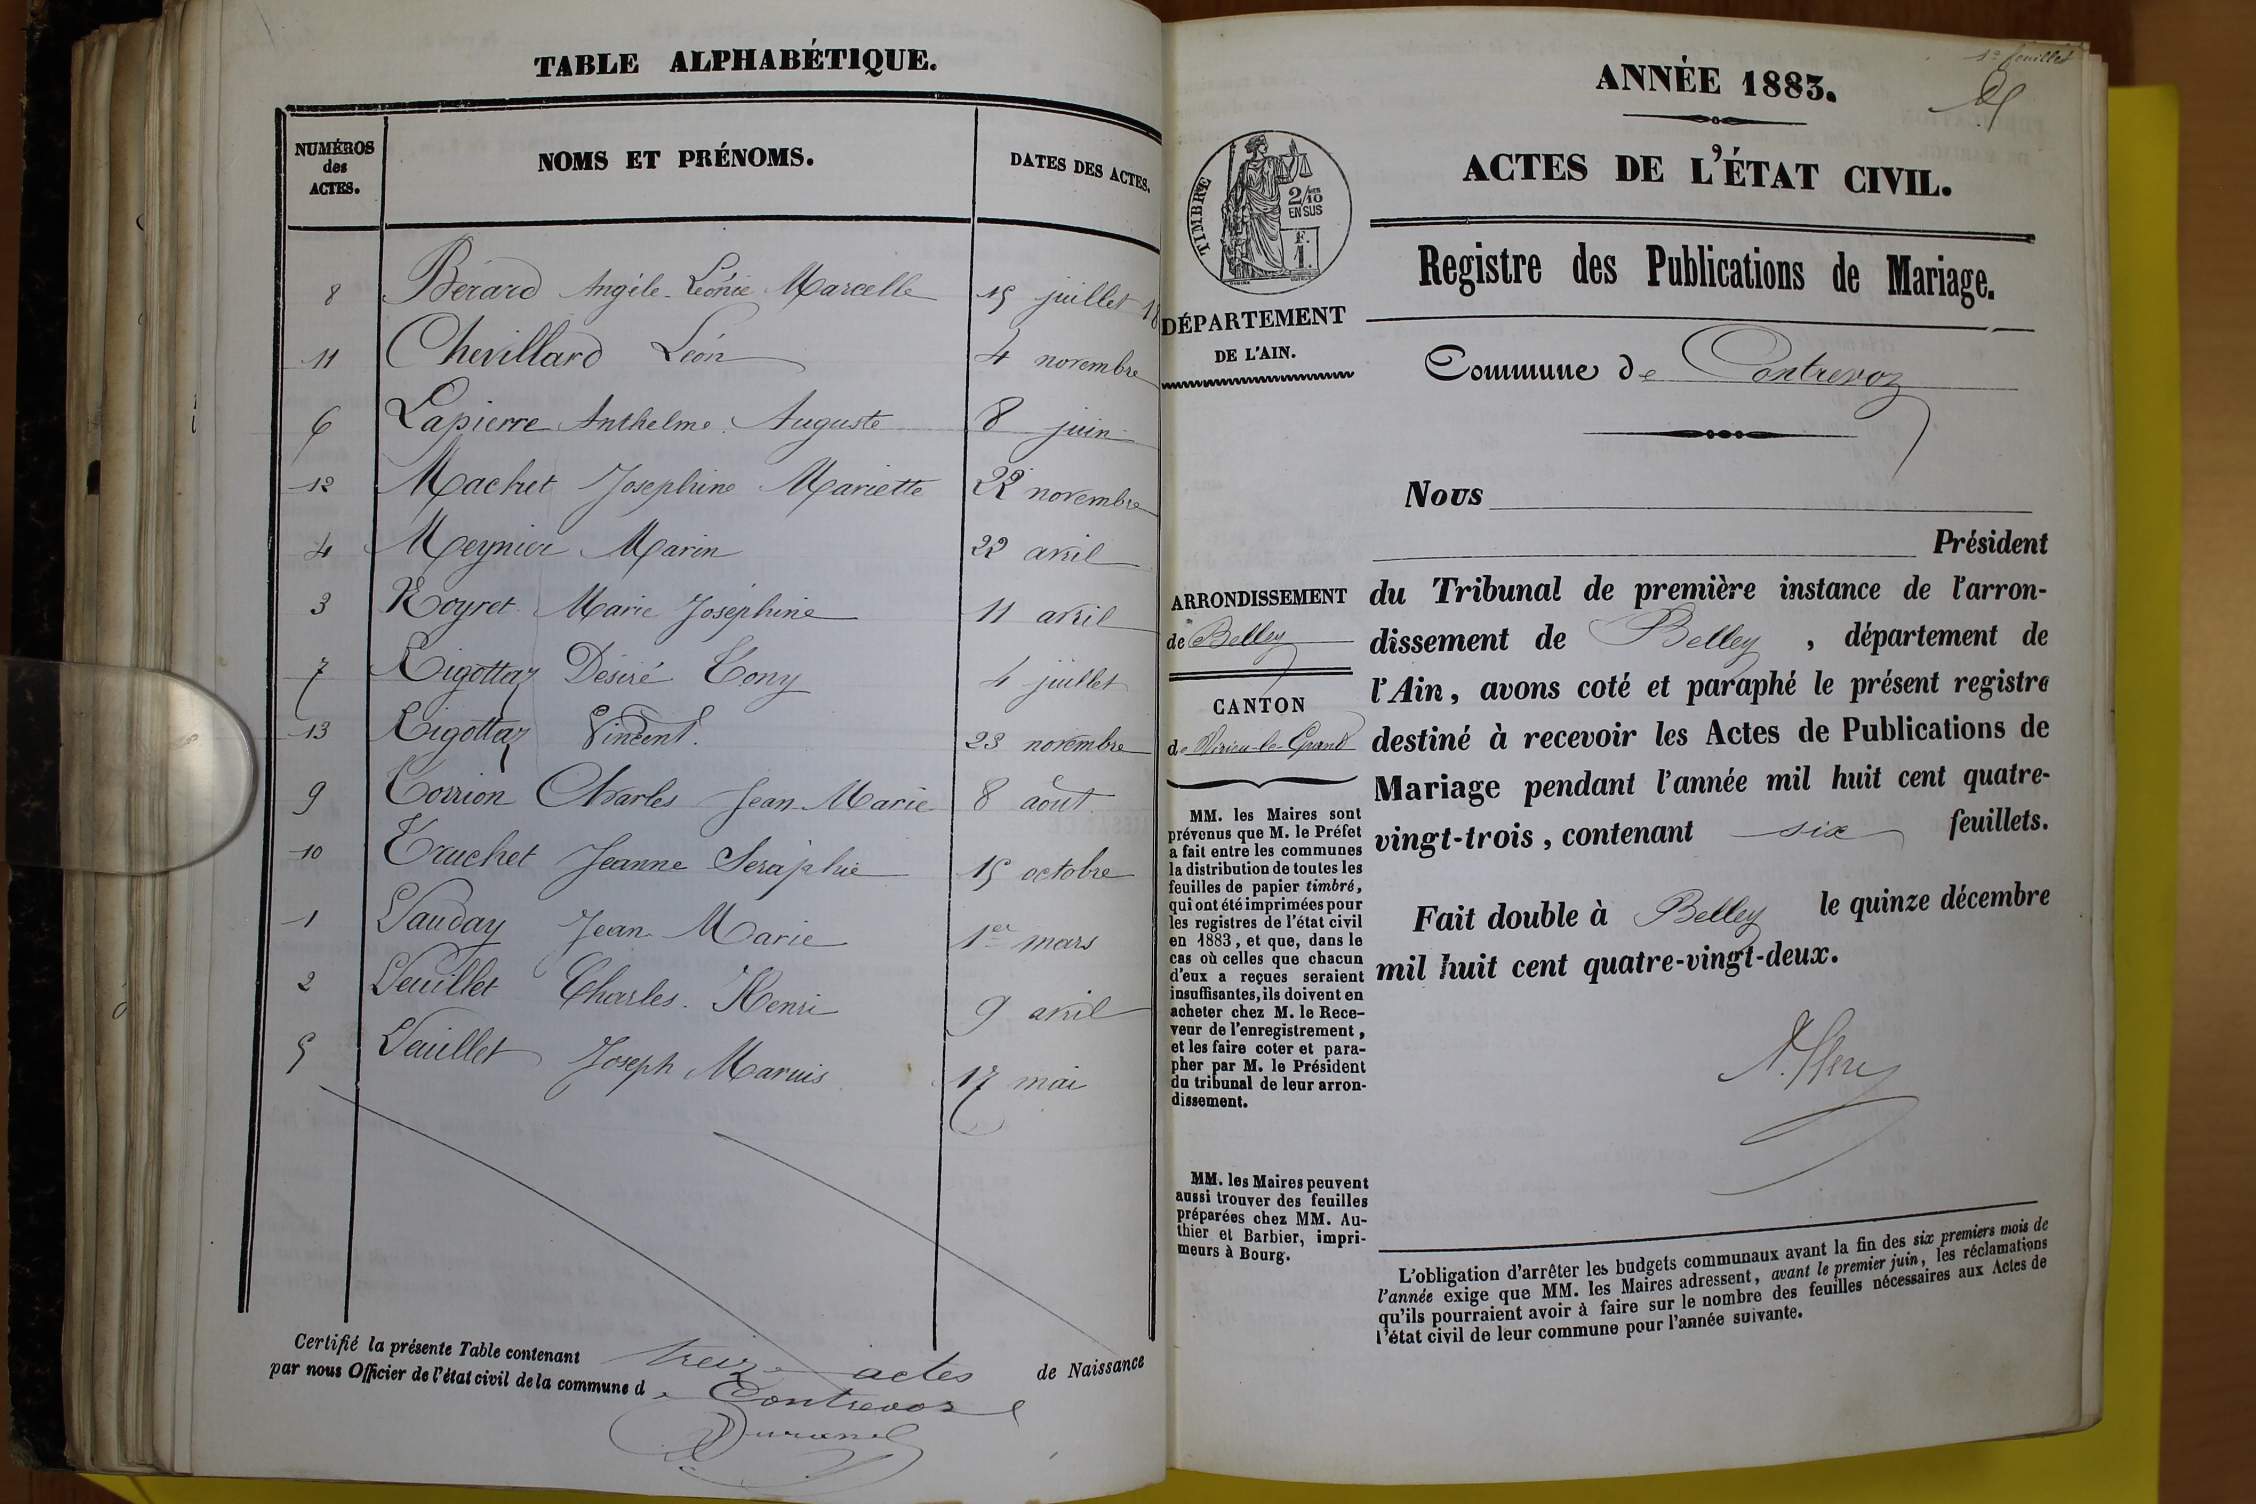 TABLE ALPHABÉTIQUE.
NUMÉROS des ACTES. NOMS ET PRÉNOMS. DATES DES ACTES.
8 Bérard Angèle Léonie Marcelle 15 juillet 18
11 Chevillard Léon 4 novembre
6 Lapierre Anthelme Auguste 8 juin
12 Machet Josephine Mariette 22 novembre
4 Meynier Marin 22 avril
3 Noyret Marie Joséphine 11 avril
7 Rigottaz Désiré Tony 4 juillet
13 Rigottaz Vincent. 23 novembre
9 Torrion Charles Jean Marie 8 août
10 Truchet Jeanne Séraphie 15 octobre
1 Vauday Jean Marie 1er mars
2 Veuillet Charles Henri 9 avril
5 Veuillet Joseph Marius 17 mai
Certifié la présente Table contenant treize actes de Naissance
par nous Officier de l'état civil de la commune de Contrevoz
1er feuillet
ANNÉE 1883.
ACTES DE L'ÉTAT CIVIL.
TIMBRE
2/10
EN SUS
F.
1.
Registre des Publications de Mariage.
DÉPARTEMENT
DE L'AIN.
Commune de Contrevoz
Nous
Président
du Tribunal de première instance de l'arron-
dissement de Belley, département de
l'Ain, avons coté et paraphé le présent registre
destiné à recevoir les Actes de Publications de
Mariage pendant l'année mil huit cent quatre-
vingt-trois, contenant six feuillets.
Fait double à Belley le quinze décembre
mil huit cent quatre-vingt-deux.
ARRONDISSEMENT
de Belley
CANTON
de Virieu-le-Grand
MM. les Maires sont
prévenus que M. le Préfet
a fait entre les communes
la distribution de toutes les
feuilles de papier timbré,
qui ont été imprimées pour
les registres de l'état civil
en 1883, et que, dans le
cas où celles que chacun
d'eux a reçues seraient
insuffisantes, ils doivent en
acheter chez M. le Rece-
veur de l'enregistrement,
et les faire coter et para-
pher par M. le Président
du tribunal de leur arron-
dissement.
MM. les Maires peuvent
aussi trouver des feuilles
préparées chez MM. Au-
thier et Barbier, impri-
meurs à Bourg.
L'obligation d'arrêter les budgets communaux avant la fin des six premiers mois de
l'année exige que MM. les Maires adressent, avant le premier juin, les réclamations
qu'ils pourraient avoir à faire sur le nombre des feuilles nécessaires aux Actes de
l'état civil de leur commune pour l'année suivante.